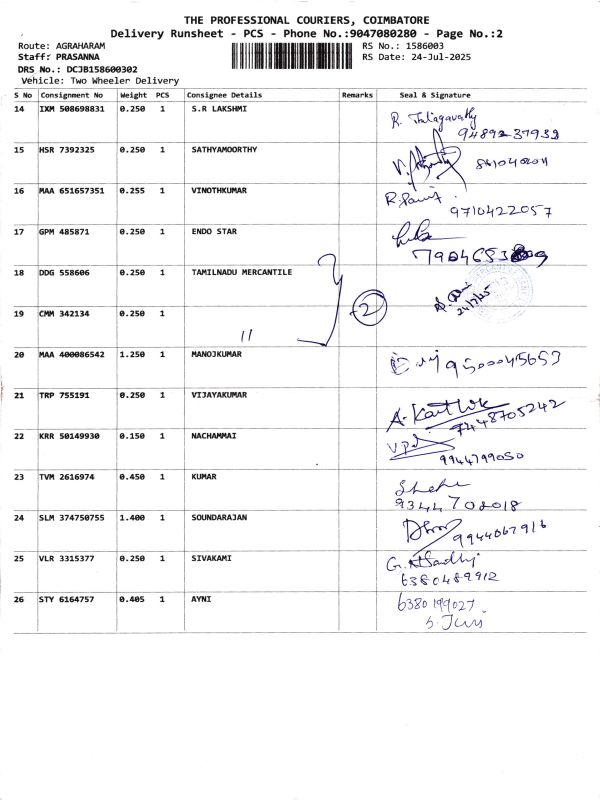 THE PROFESSIONAL COURIERS, COIMBATORE
Delivery Runsheet - PCS - Phone No.:9047080280 - Page No.:2
Route: AGRAHARAM RS No.: 1586003
Staff: PRASANNA RS Date: 24-Jul-2025
DRS No.: DCJB158600302
Vehicle: Two Wheeler Delivery
S No Consignment No Weight PCS Consignee Details Remarks Seal & Signature
14 IXM 508698831 0.250 1 S.R LAKSHMI
15 HSR 7392325 0.250 1 SATHYAMOORTHY
16 MAA 651657351 0.255 1 VINOTHKUMAR
9710422057
17 GPM 485871 0.250 1 ENDO STAR
18 DDG 558606 0.250 1 TAMILNADU MERCANTILE
2
24/7/25
19 CMM 342134 0.250 1
11
20 MAA 400086542 1.250 1 MANOJKUMAR
9500045653
21 TRP 755191 0.250 1 VIJAYAKUMAR
A. Karthik
7448705242
22 KRR 50149930 0.150 1 NACHAMMAI
9944799050
23 TVM 2616974 0.450 1 KUMAR
9344702018
24 SLM 374750755 1.400 1 SOUNDARAJAN
9944067916
25 VLR 3315377 0.250 1 SIVAKAMI
6380489912
26 STY 6164757 0.405 1 AYNI
6380199027